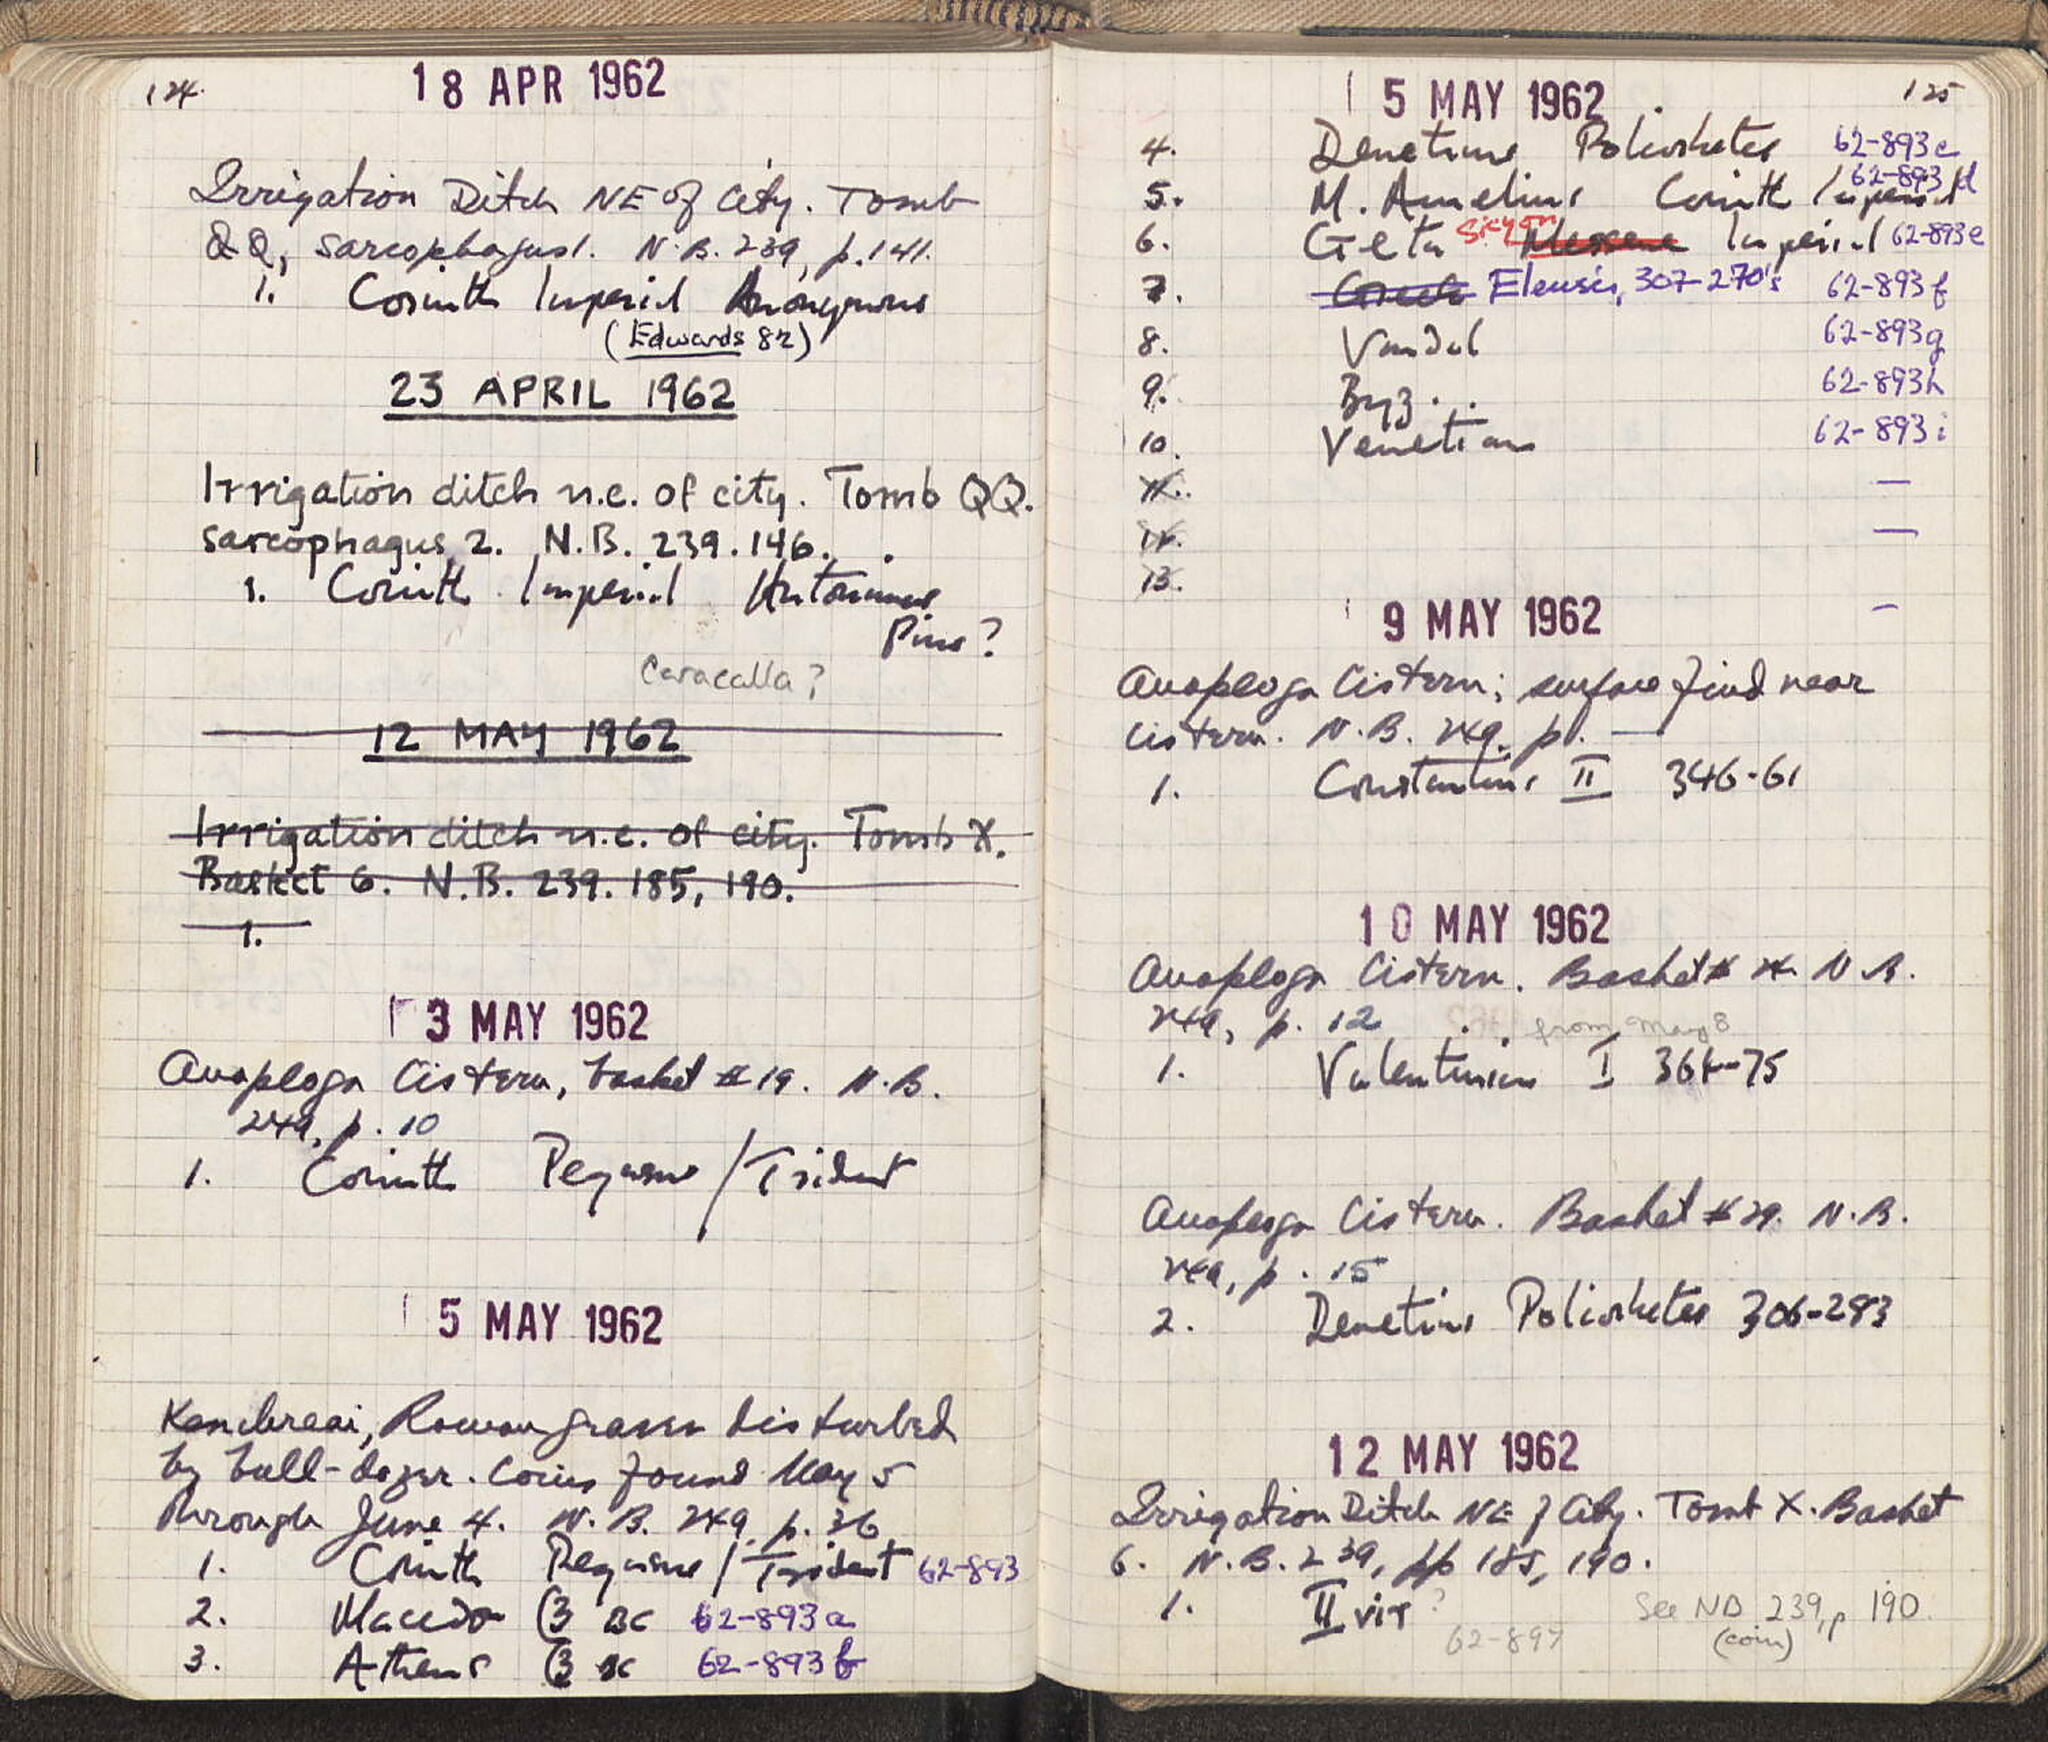 124.
18 APR 1962
Irrigation Ditch NE of City. Tomb
QQ, sarcophagus 1. N.B. 239, p. 141.
1. Corinth Imperial Anonymous
(Edwards 82)
23 APRIL 1962
Irrigation ditch n.e. of city. Tomb QQ.
sarcophagus 2. N.B. 239.146.
1. Corinth Imperial Antoninus
Pius?
Caracalla?
12 MAY 1962
Irrigation ditch n.e. of city. Tomb X.
Basket 6. N.B. 239. 185, 190.
1.
3 MAY 1962
Anaploga Cistern, basket #19. N.B.
249, p. 10
1. Corinth Pegasus / Trident
5 MAY 1962
Kenchreai, Roman graves disturbed
by bull-dozer. Coins found May 5
through June 4. N.B. 249, p. 26
1. Corinth Pegasus / Trident 62-893
2. Macedon C3 BC 62-893a
3. Athens C3 BC 62-893b
125
5 MAY 1962
4. Demetrius Poliorketes 62-893c
5. M. Aurelius Corinth Imperial 62-893d
6. Geta Sicyon Messene Imperial 62-893e
7. Greek Eleusis, 307-270's 62-893f
8. Vandal 62-893g
9. Byz. 62-893h
10. Venetian 62-893i
11. —
12. —
13. —
9 MAY 1962
Anaploga Cistern; surface find near
cistern. N.B. 249, p. —
1. Constantius II 346-61
10 MAY 1962
Anaploga Cistern. Basket # N.B.
249, p. 12 from May 8
1. Valentinian I 364-75
Anaploga Cistern. Basket #29. N.B.
249, p. 15
2. Demetrius Poliorketes 306-283
12 MAY 1962
Irrigation Ditch NE of City. Tomb X. Basket
6. N.B. 239, pp 185, 190.
1. II vir ? See NB 239, p 190.
62-897 (coin)